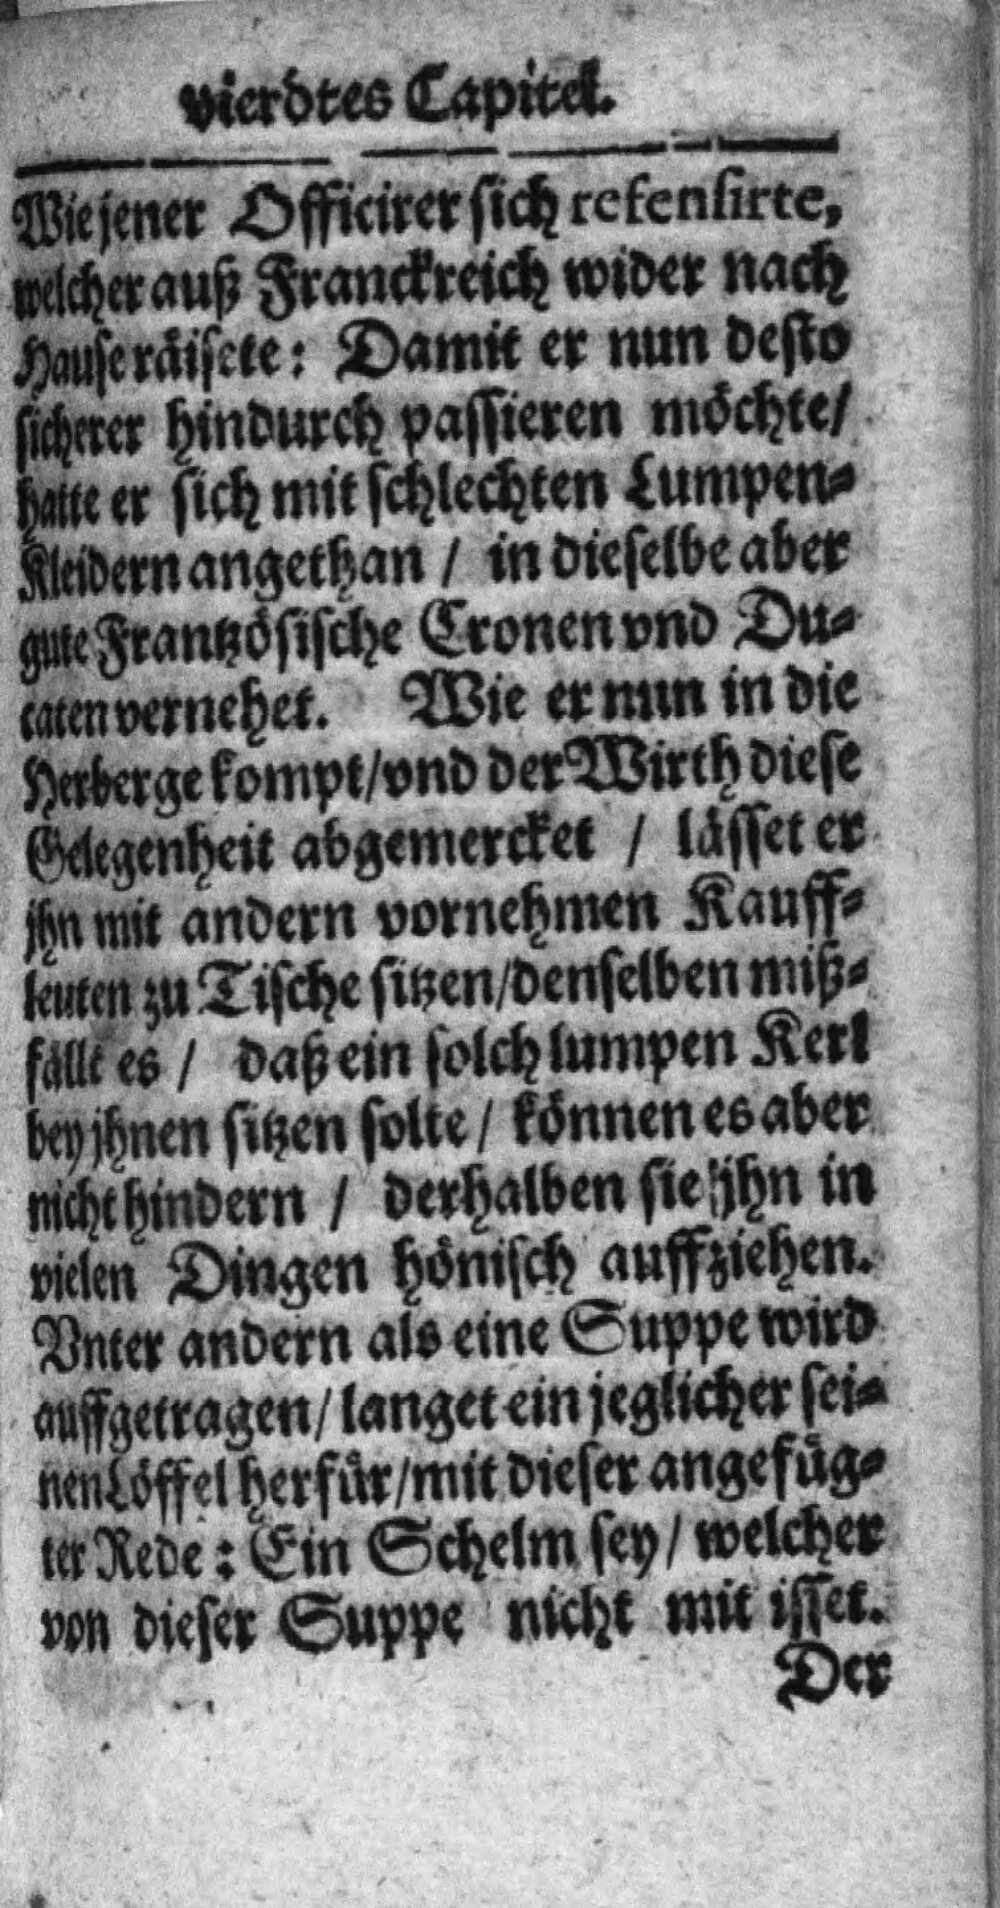 vierdtes Capitel.
Wie jener Officirer sich refensirte,
welcher auß Franckreich wider nach
Hause räisete: Damit er nun desto
sicherer hindurch passieren möchte/
hatte er sich mit schlechten Lumpen-
Kleidern angethan / in dieselbe aber
gute Frantzösische Cronen vnd Du-
caten vernehet. Wie er nun in die
Herberge kompt/vnd der Wirth diese
Gelegenheit abgemercket / lässet er
jhn mit andern vornehmen Kauff-
leuten zu Tische sitzen/denselben miß-
fällt es / daß ein solch lumpen Kerl
bey jhnen sitzen solte / können es aber
nicht hindern / derhalben sie jhn in
vielen Dingen hönisch auffziehen.
Vnter andern als eine Suppe wird
auffgetragen/ langet ein jeglicher sei-
nen Löffel herfür/mit dieser angefüg-
ter Rede: Ein Schelm sey/ welcher
von dieser Suppe nicht mit isset.
Der